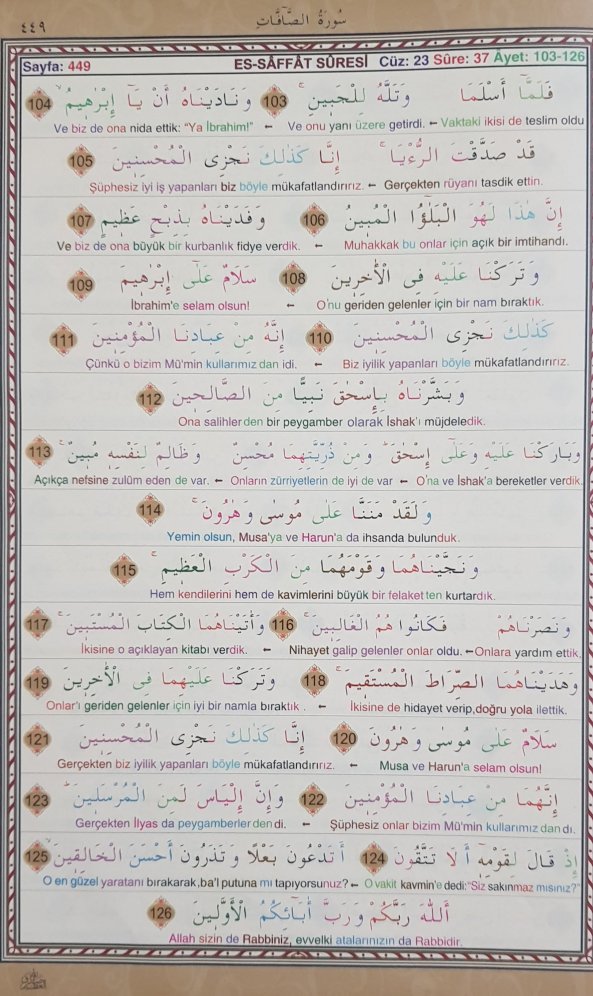 سُورَةُ الصَّٓافَّاتِ
٤٤٩
Sayfa: 449 ES-SÂFFÂT SÛRESİ Cüz: 23 Sûre: 37 Âyet: 103-126
فَلَمَّٓا أَسْلَمَا وَتَلَّهُ لِلْجَبِينِ 103 وَنَادَيْنَاهُ أَنْ يَٓا إِبْرٰهِيمُ 104
Vaktaki ikisi de teslim oldu ← Ve onu yanı üzere getirdi. ← Ve biz de ona nida ettik: "Ya İbrahim!"
قَدْ صَدَّقْتَ الرُّءْيَا إِنَّا كَذٰلِكَ نَجْزِى الْمُحْسِنِينَ 105
Gerçekten rüyanı tasdik ettin. ← Şüphesiz iyi iş yapanları biz böyle mükafatlandırırız.
إِنَّ هٰذَا لَهُوَ الْبَلٰٓؤُا الْمُبِينُ 106 وَفَدَيْنَاهُ بِذِبْحٍ عَظِيمٍ 107
Muhakkak bu onlar için açık bir imtihandı. ← Ve biz de ona büyük bir kurbanlık fidye verdik.
وَتَرَكْنَا عَلَيْهِ فِى الْأٰخِرِينَ 108 سَلَامٌ عَلٰٓى إِبْرٰهِيمَ 109
O'nu geriden gelenler için bir nam bıraktık. ← İbrahim'e selam olsun!
كَذٰلِكَ نَجْزِى الْمُحْسِنِينَ 110 إِنَّهُ مِنْ عِبَادِنَا الْمُؤْمِنِينَ 111
Biz iyilik yapanları böyle mükafatlandırırız. ← Çünkü o bizim Mü'min kullarımız dan idi.
وَبَشَّرْنَاهُ بِإِسْحٰقَ نَبِيًّا مِنَ الصَّالِحِينَ 112
Ona salihlerden bir peygamber olarak İshak'ı müjdeledik.
وَبَارَكْنَا عَلَيْهِ وَعَلٰٓى إِسْحٰقَ وَمِنْ ذُرِّيَّتِهِمَا مُحْسِنٌ وَظَالِمٌ لِنَفْسِهِ مُبِينٌ 113
O'na ve İshak'a bereketler verdik. ← Onların zürriyetlerin de iyi de var ← Açıkça nefsine zulüm eden de var.
وَلَقَدْ مَنَنَّا عَلٰى مُوسٰى وَهٰرُونَ 114
Yemin olsun, Musa'ya ve Harun'a da ihsanda bulunduk.
وَنَجَّيْنَاهُمَا وَقَوْمَهُمَا مِنَ الْكَرْبِ الْعَظِيمِ 115
Hem kendilerini hem de kavimlerini büyük bir felaket ten kurtardık.
وَنَصَرْنَاهُمْ فَكَانُوا هُمُ الْغَالِبِينَ 116 وَأٰتَيْنَاهُمَا الْكِتَابَ الْمُسْتَبِينَ 117
Onlara yardım ettik, ← Nihayet galip gelenler onlar oldu. ← İkisine o açıklayan kitabı verdik.
وَهَدَيْنَاهُمَا الصِّرَاطَ الْمُسْتَقِيمَ 118 وَتَرَكْنَا عَلَيْهِمَا فِى الْأٰخِرِينَ 119
İkisine de hidayet verip,doğru yola ilettik. ← Onlar'ı geriden gelenler için iyi bir namla bıraktık .
سَلَامٌ عَلٰى مُوسٰى وَهٰرُونَ 120 إِنَّا كَذٰلِكَ نَجْزِى الْمُحْسِنِينَ 121
Musa ve Harun'a selam olsun! ← Gerçekten biz iyilik yapanları böyle mükafatlandırırız.
إِنَّهُمَا مِنْ عِبَادِنَا الْمُؤْمِنِينَ 122 وَإِنَّ إِلْيَاسَ لَمِنَ الْمُرْسَلِينَ 123
Şüphesiz onlar bizim Mü'min kullarımız dan dı. ← Gerçekten İlyas da peygamberler den di.
إِذْ قَالَ لِقَوْمِهِ أَلَا تَتَّقُونَ 124 أَتَدْعُونَ بَعْلًا وَتَذَرُونَ أَحْسَنَ الْخَالِقِينَ 125
O vakit kavmin'e dedi:"Siz sakınmaz mısınız?" ← O en güzel yaratanı bırakarak,ba'l putuna mı tapıyorsunuz?
أَللّٰهَ رَبَّكُمْ وَرَبَّ أٰبَٓائِكُمُ الْأَوَّلِينَ 126
Allah sizin de Rabbiniz, evvelki atalarınızın da Rabbidir.